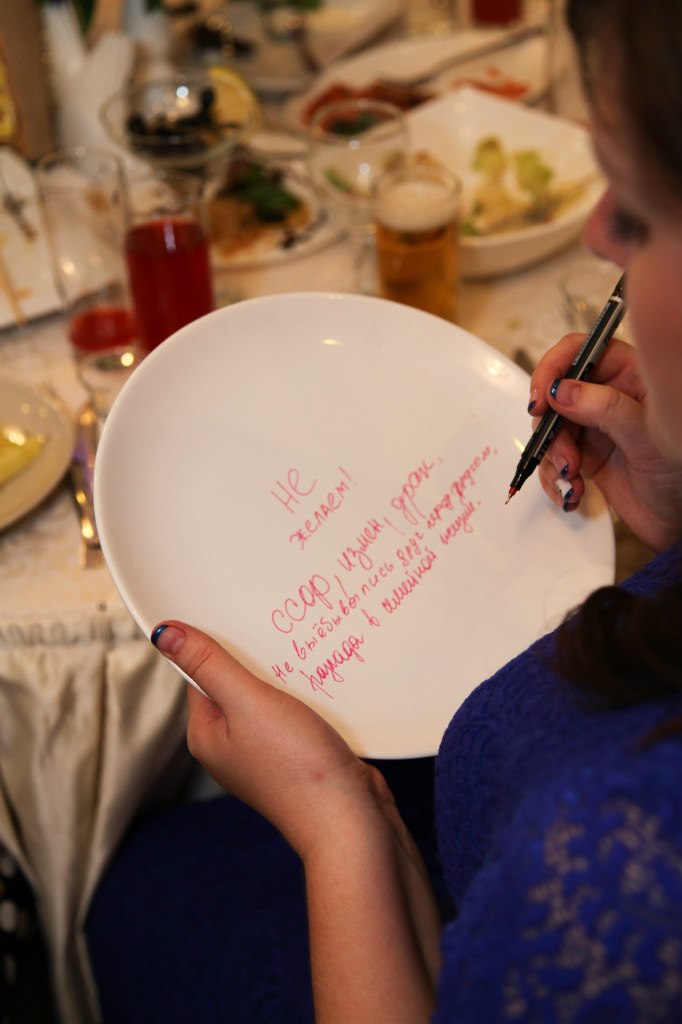 Не
желаем!
ССОР, измен, драк,
не выёбывались друг перед другом,
разлада в семейной жизни.